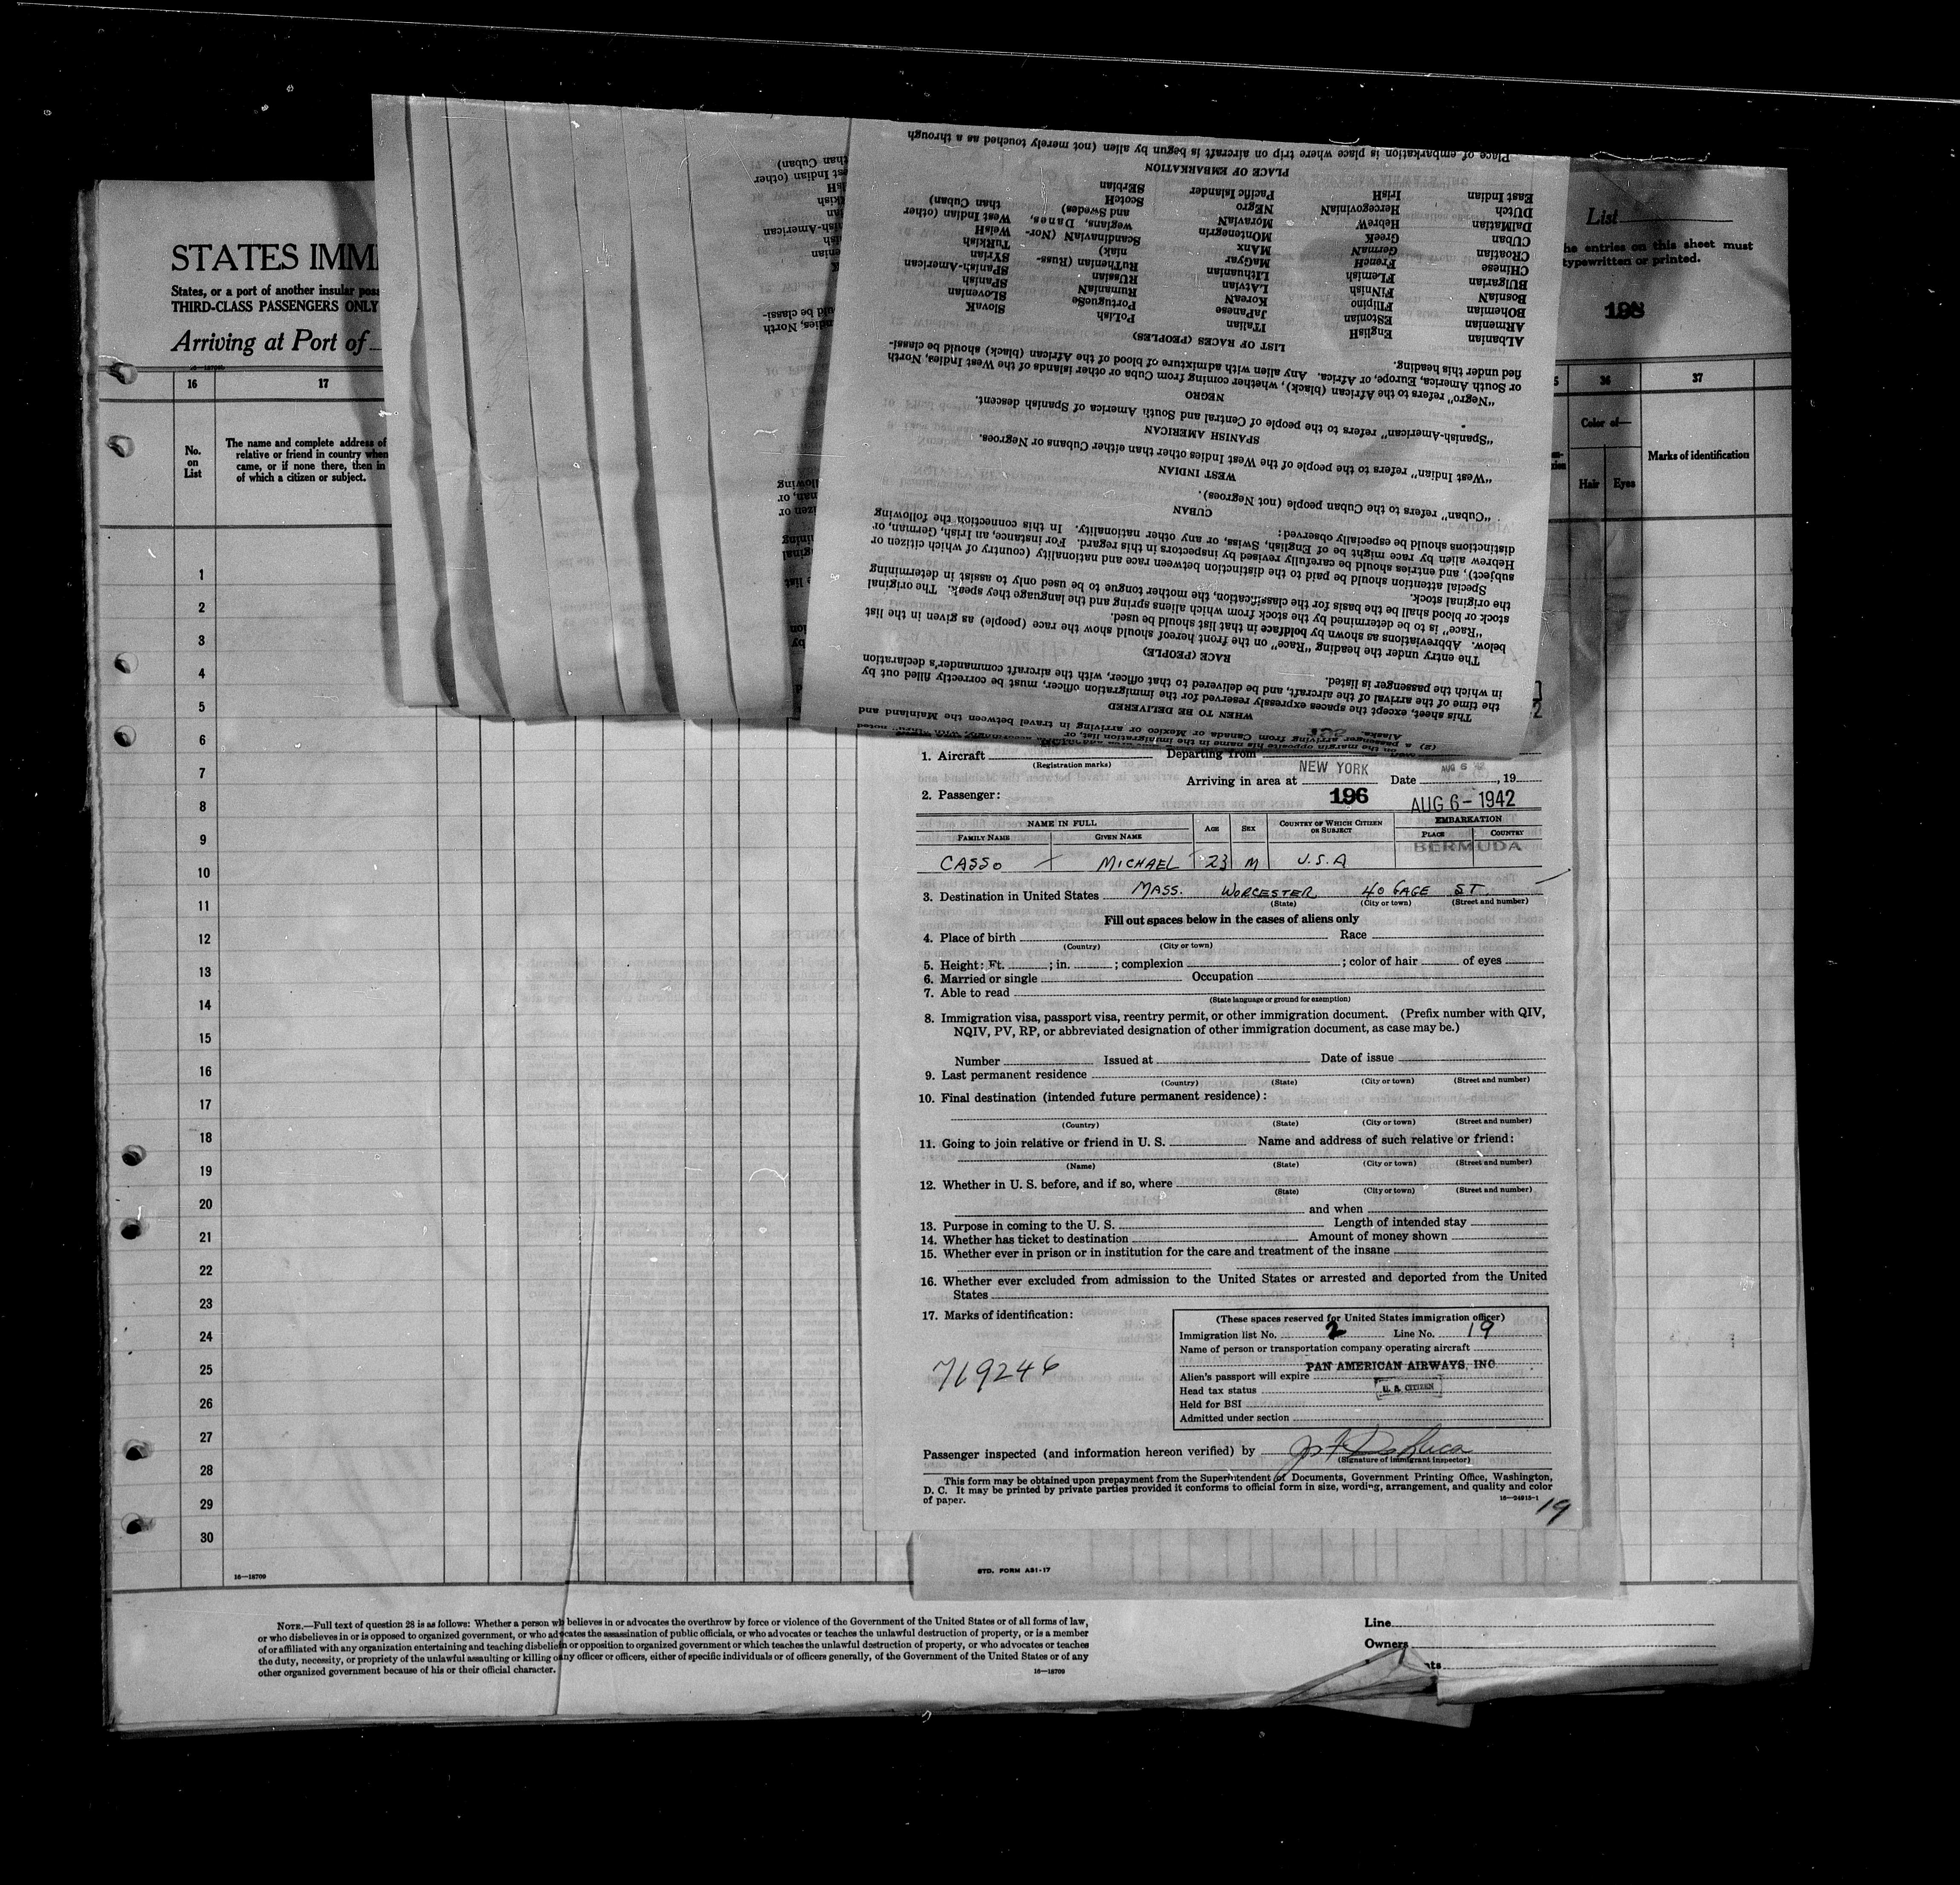 Place of embarkation is place where trip on aircraft is begun by alien (not merely touched as a through
PLACE OF EMBARKATION
East Indian IrisH Pacific Islander SErbian
DUtch HercegoviniaN NEgro ScotcH than Cuban)
DalMatian HebreW MoraviaN and Swedes) West Indian (other
CUban GreeK MOntenegrin wegians, Danes, WelsH
CRoatian GermaN MAnx ScandinaviaN (Nor- TuRKish
CHinese FrencH MaGyar niak) SYrian
BUlgarian FLemish LIthuanian RuThenian (Russ- SPanish-American
BosniaN FiNnish LAtvian RUssian SPanish
BOhemian FIlipino KoreaN RumaniaN SLOvenian
ARmenian EStonian JaPanese PortugueSe SlovaK
AlBanian EngliSH ITalian PoLish
LIST OF RACES (PEOPLES)
fied under this heading.
or South America, Europe, or Africa. Any alien with admixture of blood of the African (black) should be classi-
"Negro" refers to the African (black), whether coming from Cuba or other islands of the West Indies, North
NEGRO
"Spanish-American" refers to the people of Central and South America of Spanish descent.
SPANISH AMERICAN
"West Indian" refers to the people of the West Indies other than either Cubans or Negroes.
WEST INDIAN
"Cuban" refers to the Cuban people (not Negroes).
CUBAN
distinctions should be especially observed:
Hebrew alien by race might be of English, Swiss, or any other nationality. In this connection the following
subject), and entries should be carefully revised by inspectors in this regard. For instance, an Irish, German, or
Special attention should be paid to the distinction between race and nationality (country of which citizen or
the original stock.
stock or blood shall be the basis for the classification, the mother tongue to be used only to assist in determining
"Race" is to be determined by the stock from which aliens spring and the language they speak. The original
below. Abbreviations as shown by boldface in that list should be used.
The entry under the heading "Race" on the front hereof should show the race (people) as given in the list
RACE (PEOPLE)
in which the passenger is listed.
the time of the arrival of the aircraft, and be delivered to that officer, with the aircraft commander's declaration
This sheet, except the spaces expressly reserved for the immigration officer, must be correctly filled out by
WHEN TO BE DELIVERED
Alaska.
(2) a passenger arriving from Canada or Mexico or arriving in travel between the Mainland and
STATES IMMI
States, or a part of another insular poss
THIRD-CLASS PASSENGERS ONLY
Arriving at Port of
List
he entries on this sheet must
typewritten or printed.
198
16 17 36 37
No.
on
List
The name and complete address of
relative or friend in country when
came, or if none there, then in
of which a citizen or subject.
Color of—
Hair Eyes
Marks of identification
1
2
3
4
5
6
7
8
9
10
11
12
13
14
15
16
17
18
19
20
21
22
23
24
25
26
27
28
29
30
16—18709
1. Aircraft Departing from
(Registration marks)
Arriving in area at NEW YORK Date , 19
AUG 6 '42
2. Passenger: 196 AUG 6 - 1942
NAME IN FULL AGE SEX COUNTRY OF WHICH CITIZEN OR SUBJECT EMBARKATION
FAMILY NAME GIVEN NAME PLACE COUNTRY
BERMUDA
CASSO MICHAEL 23 M U.S.A
3. Destination in United States MASS. WORCESTER 40 GAGE ST
(State) (City or town) (Street and number)
Fill out spaces below in the cases of aliens only
4. Place of birth Race
(Country) (City or town)
5. Height: Ft. ; in. ; complexion ; color of hair of eyes
6. Married or single Occupation
7. Able to read
(State language or ground for exemption)
8. Immigration visa, passport visa, reentry permit, or other immigration document. (Prefix number with QIV,
NQIV, PV, RP, or abbreviated designation of other immigration document, as case may be.)
Number Issued at Date of issue
9. Last permanent residence
(Country) (State) (City or town) (Street and number)
10. Final destination (intended future permanent residence):
(Country) (State) (City or town) (Street and number)
11. Going to join relative or friend in U. S. Name and address of such relative or friend:
(Name) (State) (City or town) (Street and number)
12. Whether in U. S. before, and if so, where
(State) (City or town) (Street and number)
and when
13. Purpose in coming to the U. S. Length of intended stay
14. Whether has ticket to destination Amount of money shown
15. Whether ever in prison or in institution for the care and treatment of the insane
16. Whether ever excluded from admission to the United States or arrested and deported from the United
States
17. Marks of identification:
719246
(These spaces reserved for United States immigration officer)
Immigration list No. 2 Line No. 19
Name of person or transportation company operating aircraft
PAN AMERICAN AIRWAYS, INC
Alien's passport will expire
Head tax status U. S. CITIZEN
Held for BSI
Admitted under section
Passenger inspected (and information hereon verified) by
(Signature of immigrant inspector)
This form may be obtained upon prepayment from the Superintendent of Documents, Government Printing Office, Washington,
D. C. It may be printed by private parties provided it conforms to official form in size, wording, arrangement, and quality and color
of paper.
16—24915-1
19
STD. FORM AS1-17
NOTE.—Full text of question 28 is as follows: Whether a person wh believes in or advocates the overthrow by force or violence of the Government of the United States or of all forms of law,
or who disbelieves in or is opposed to organized government, or who advocates the assassination of public officials, or who advocates or teaches the unlawful destruction of property, or is a member
of or affiliated with any organization entertaining and teaching disbelief in or opposition to organized government or which teaches the unlawful destruction of property, or who advocates or teaches
the duty, necessity, or propriety of the unlawful assaulting or killing of any officer or officers, either of specific individuals or of officers generally, of the Government of the United States or of any
other organized government because of his or their official character.
16—18709
Line
Owners
nts